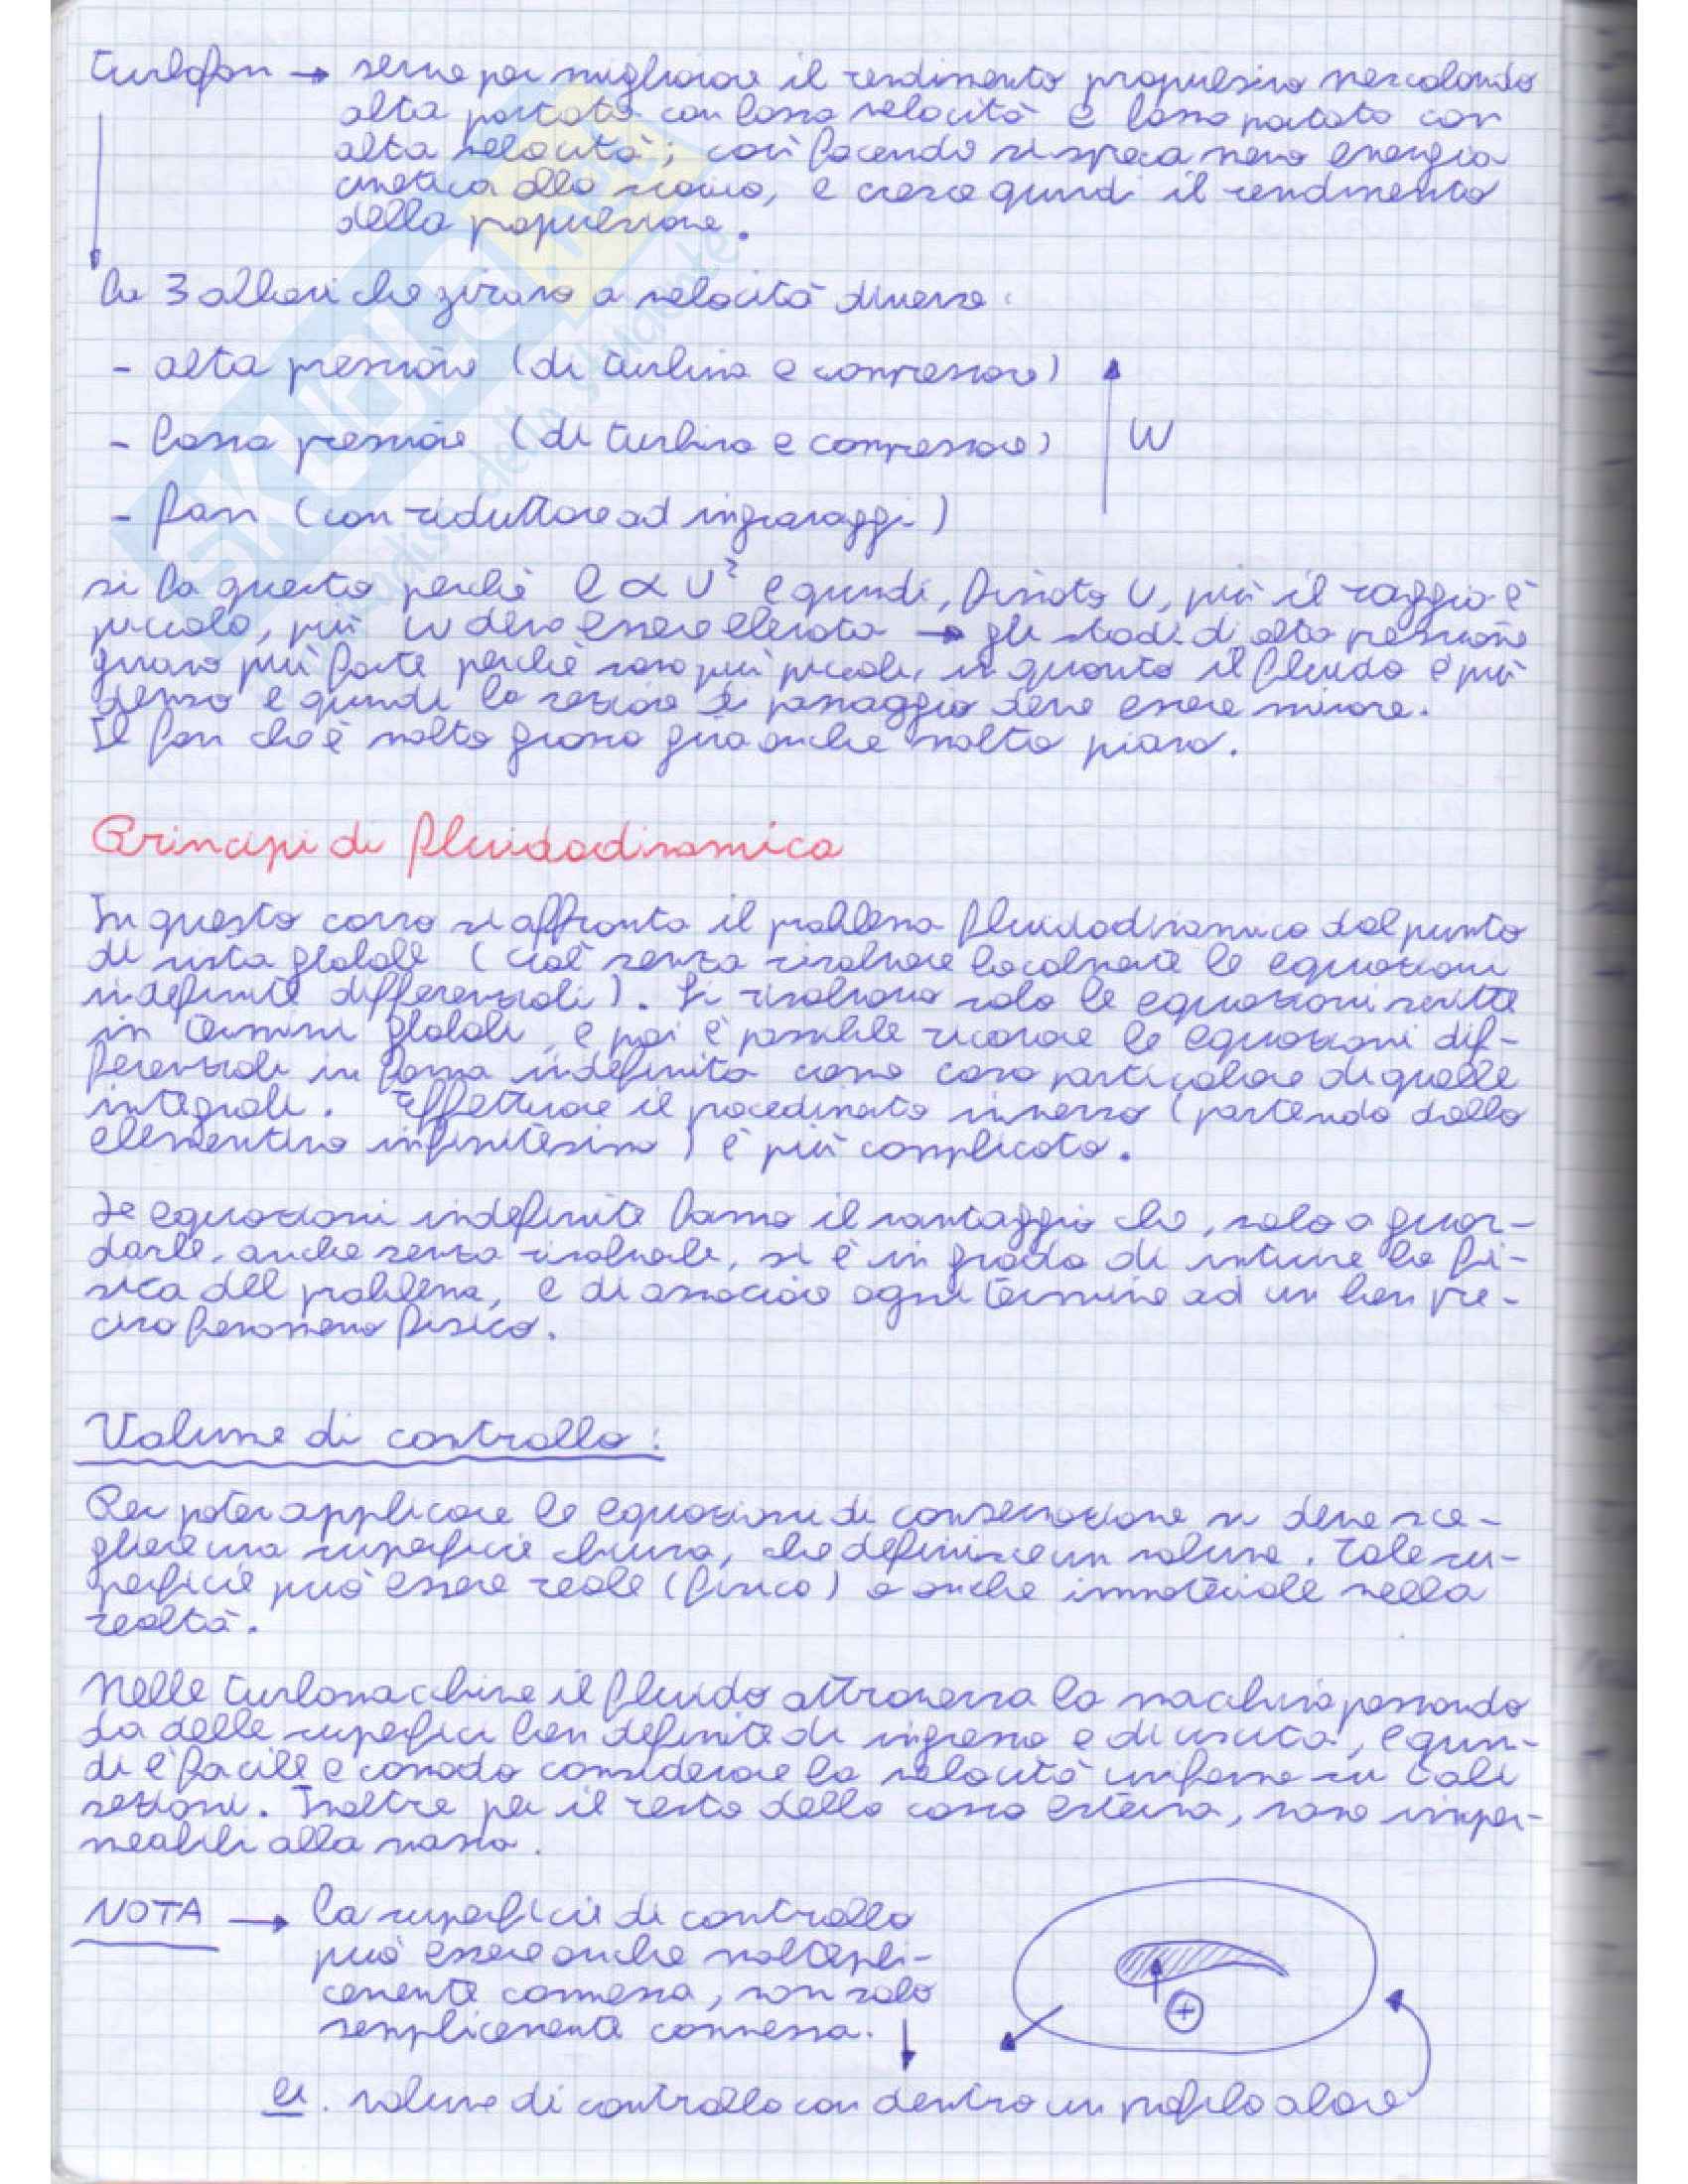 turbofan → serve per migliorare il rendimento propulsivo mescolando
alta portata con bassa velocità e bassa portata con
alta velocità; così facendo si spreca meno energia
cinetica allo scarico, e cresce quindi il rendimento
della propulsione.
ha 3 alberi che girano a velocità diverse:
- alta pressione (di turbina e compressore)
- bassa pressione (di turbina e compressore)
W
- fan (con riduttore ad ingranaggi)
si fa questo perchè l ∝ U² e quindi, fissato U, più il raggio è
piccolo, più ω deve essere elevata → gli stadi di alta pressione
girano più forte perchè sono più piccoli, in quanto il fluido è più
denso e quindi la sezione di passaggio deve essere minore.
Il fan che è molto grosso gira anche molto piano.
Principi di fluidodinamica
In questo corso si affronta il problema fluidodinamico dal punto
di vista globale (cioè senza risolvere localmente le equazioni
indefinite differenziali). Si risolvono solo le equazioni scritte
in termini globali, e poi è possibile ricavare le equazioni dif-
ferenziali in forma indefinita come caso particolare di quelle
integrali. Effettuare il procedimento inverso (partendo dallo
elementino infinitesimo) è più complicato.
Le equazioni indefinite hanno il vantaggio che, solo a guar-
darle, anche senza risolverle, si è in grado di intuire la fi-
sica del problema, e di associare ogni termine ad un ben pre-
ciso fenomeno fisico.
Volume di controllo:
Per poter applicare le equazioni di conservazione si deve sce-
gliere una superficie chiusa, che definisce un volume. Tale su-
perficie può essere reale (fisica) o anche immateriale nella
realtà.
Nelle turbomacchine il fluido attraversa la macchina passando
da delle superfici ben definite di ingresso e di uscita, e quin-
di è facile e comodo considerare la velocità uniforme su tali
sezioni. Inoltre per il resto della cassa esterna, sono imper-
meabili alla massa.
NOTA → la superficie di controllo
può essere anche moltepli-
cemente connessa, non solo
semplicemente connessa.
+
es. volume di controllo con dentro un profilo alare
SKUOLA.net